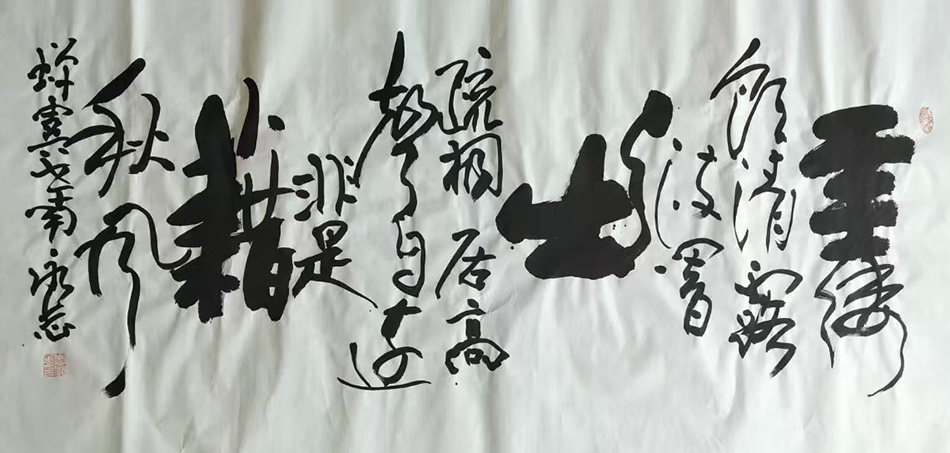 垂緌
飲清露
流響
出
疏桐居高
聲自遠
非是
藉
秋風
蝉虞世南